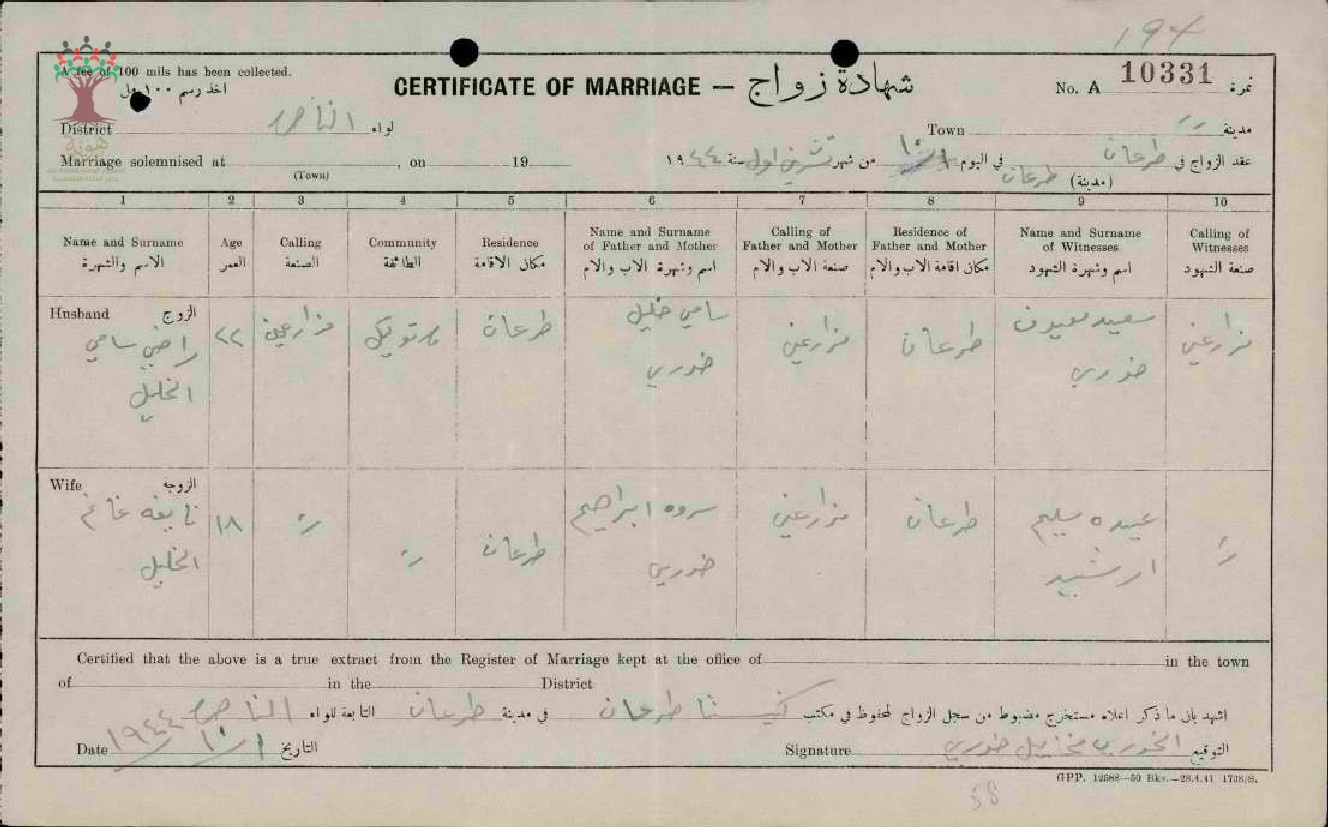 194
A fee of 100 mils has been collected.
اخذ رسم ١٠٠ مل
CERTIFICATE OF MARRIAGE — شهادة زواج
No. A 10331 نمرة
District الناصره لواء
Town ,, مدينة
هوية
Marriage solemnised at , on 19
(Town)
عقد الزواج في طرعان في اليوم من شهر تشرين اول سنة ١٩٤٤
(مدينة) طرعان
1 2 3 4 5 6 7 8 9 10
Name and Surname Age Calling Community Residence Name and Surname of Father and Mother Calling of Father and Mother Residence of Father and Mother Name and Surname of Witnesses Calling of Witnesses
الاسم والشهرة العمر الصنعة الطائفة مكان الاقامة اسم وشهرة الاب والام صنعة الاب والام مكان اقامة الاب والام اسم وشهرة الشهود صنعة الشهود
Husband الزوج
راضي سامي الخليل ٢٢ مزارعين طرعان سامي خليل خوري مزارعين طرعان سعيد خوري مزارعين
Wife الزوجه
نايفه غانم الخليل ١٨ ,, ,, طرعان ابراهيم خوري مزارعين طرعان عبده سليم ارشيد ,,
Certified that the above is a true extract from the Register of Marriage kept at the office of in the town
of in the District
اشهد بان ما ذكر اعلاه مستخرج مضبوط من سجل الزواج المحفوظ في مكتب كنيسة طرعان في مدينة طرعان التابعة للواء الناصره
Date ١/١٠/١٩٤٤ التاريخ
Signature الخوري مخايل خوري التوقيع
GPP. 12588—50 Bks.—28.4.41
58